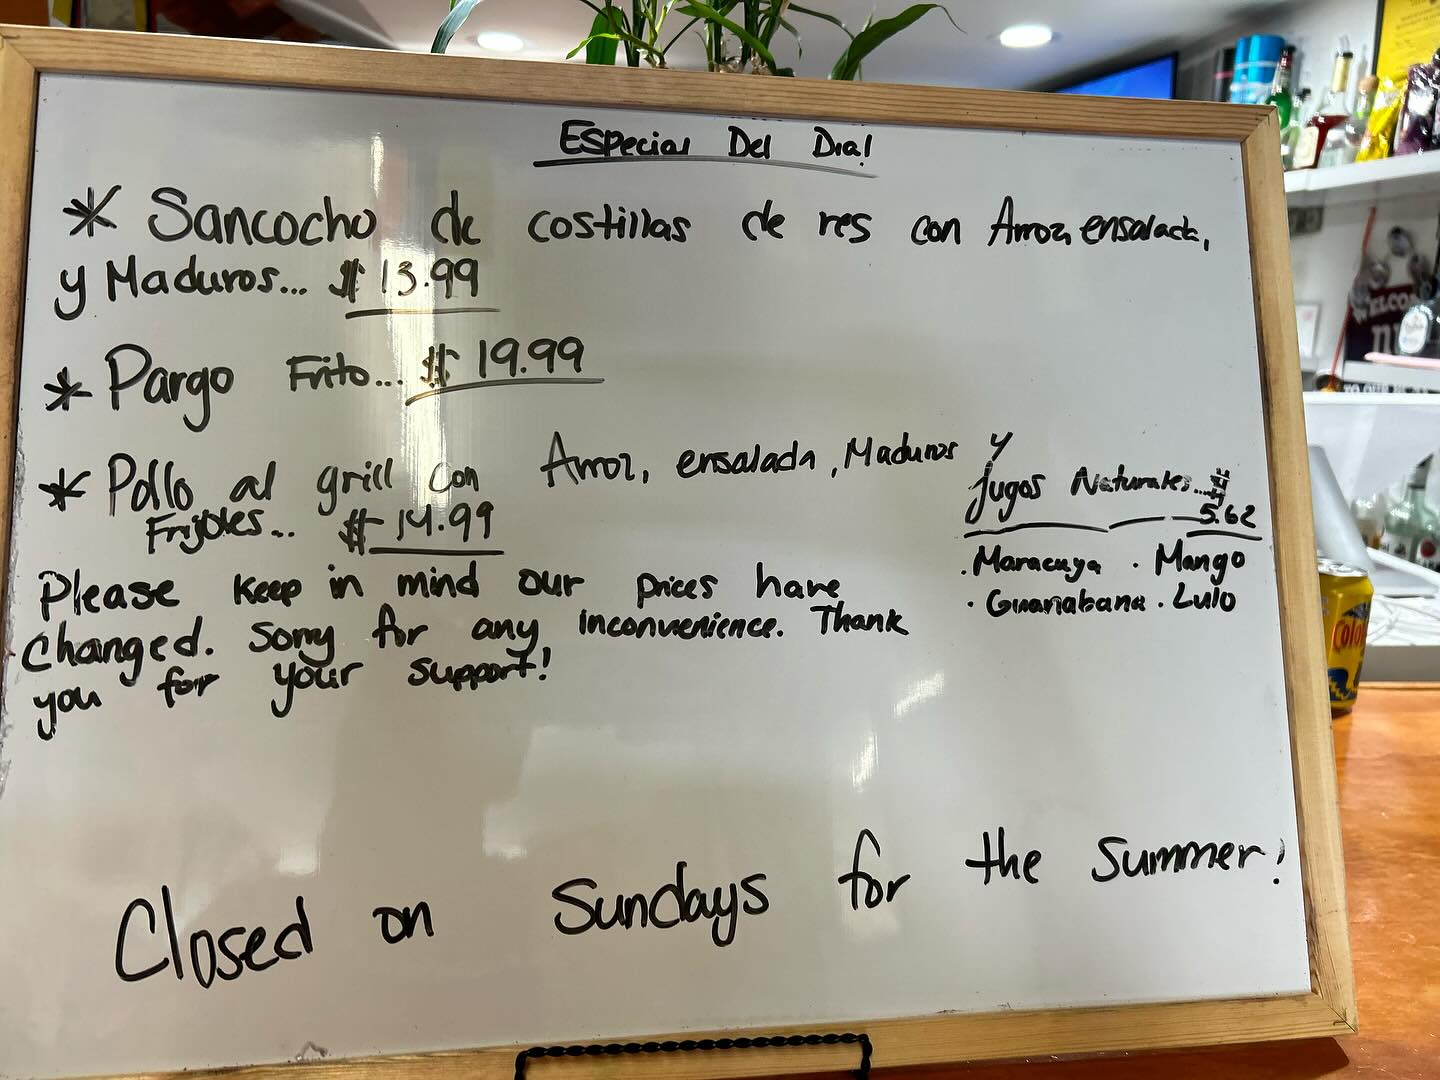 Especial Del Dia!
* Sancocho de costillas de res con Arroz, ensalada,
y Maduros... $13.99
* Pargo Frito... $19.99
* Pollo al grill con Arroz, ensalada, Maduros y
Frijoles... $14.99
Jugos Naturales...$
5.62
. Maracuya . Mango
. Guanabana . Lulo
Please keep in mind our prices have
changed. Sorry for any inconvenience. Thank
you for your support!
Closed on Sundays for the summer!
WELCO